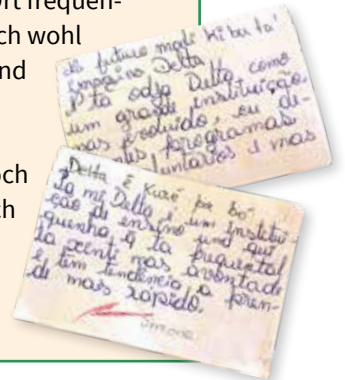 Ort frequen-
ch wohl
nd
och
ch
di futuro modi ki bu ta
Delta
ta odja Delta como
um grande instituição,
mas produzido, cu di-
programas
i mas
Delta é kuzé pa bo?
Pa mi Delta é um institui-
ção di ensino und qui
quenha q ta
ta xente mas avontadi
e tem tendência a pren-
di mas rápido.
Simone